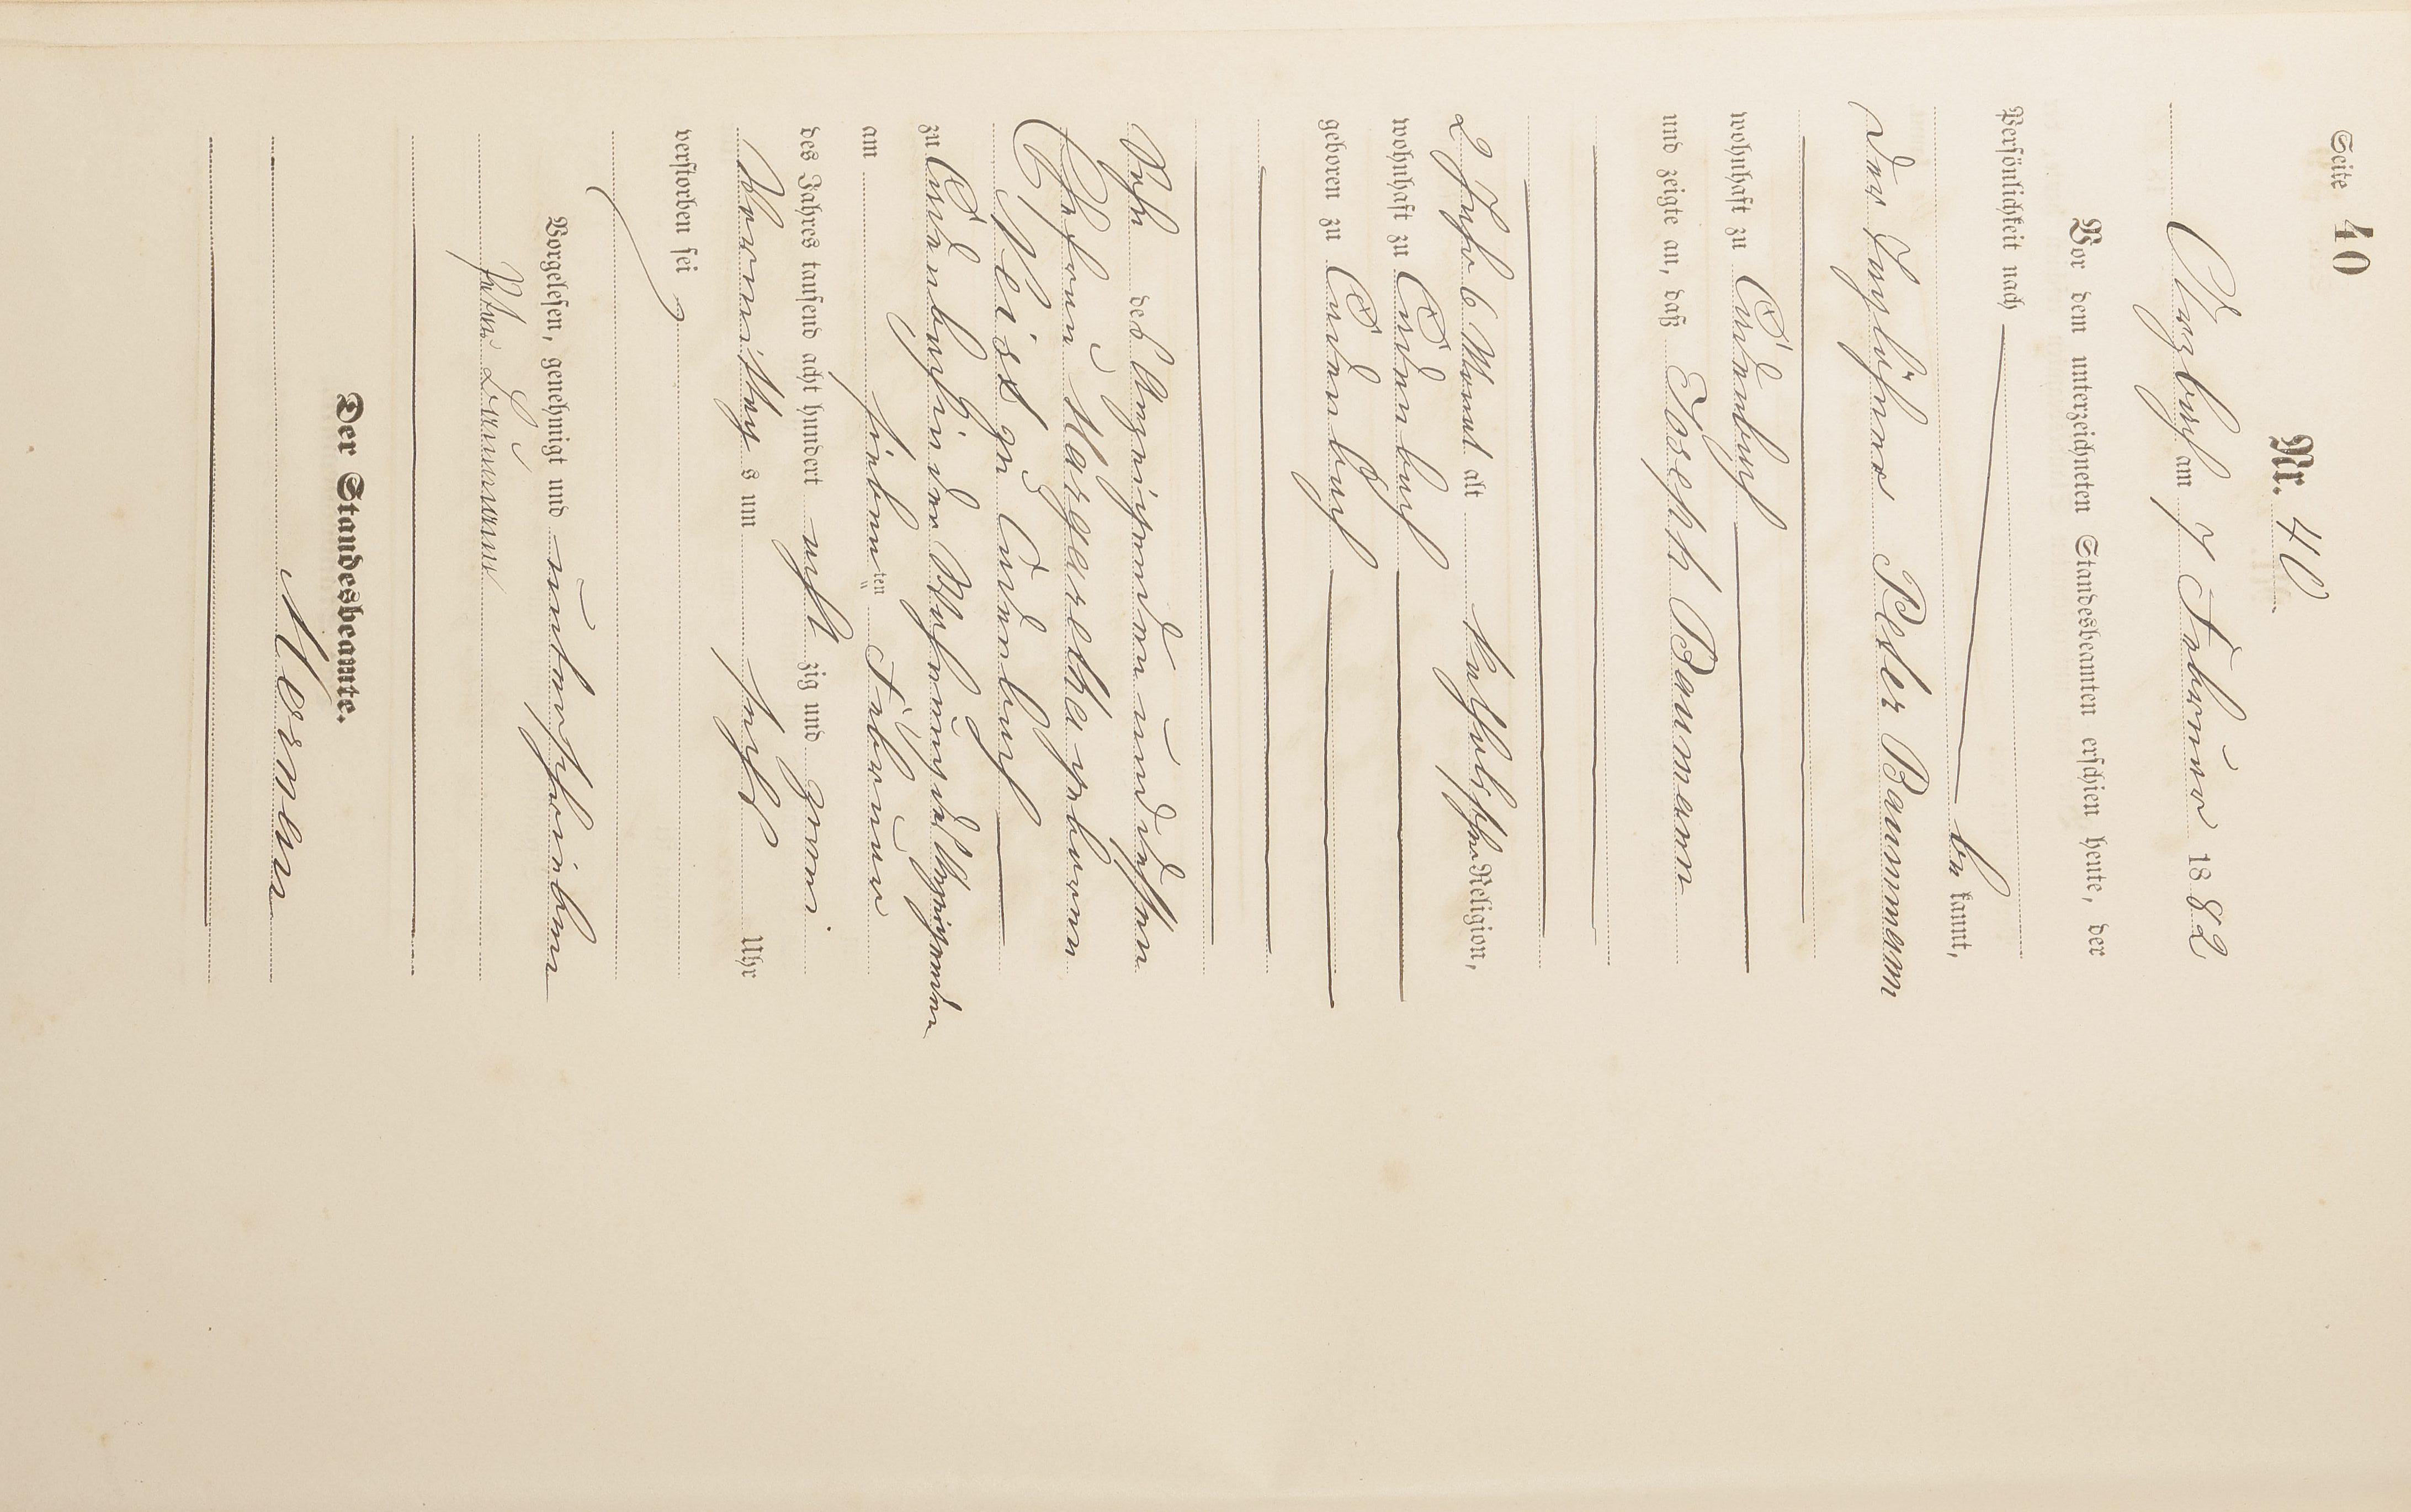 Seite 40
Nr. 40
Arzbach am 7 Februar 1882
Vor dem unterzeichneten Standesbeamten erschien heute, der
Persönlichkeit nach
be kannt,
der Tagelöhner Peter Baumann
wohnhaft zu Cadenbach
und zeigte an, daß Joseph Baumann
2 Jahr 6 Monat alt katholischer Religion,
wohnhaft zu Cadenbach
geboren zu Cadenbach
Sohn des Anzeigenden und dessen
Ehefrau Margaretha geborene
zu Cadenbach
zu Cadenbach in der Wohnung des Anzeigenden
am siebenten Februar
des Jahres tausend acht hundert acht zig und zwei
Vormittags um sechs Uhr
verstorben sei
Vorgelesen, genehmigt und unterschrieben
Peter Baumann
Der Standesbeamte.